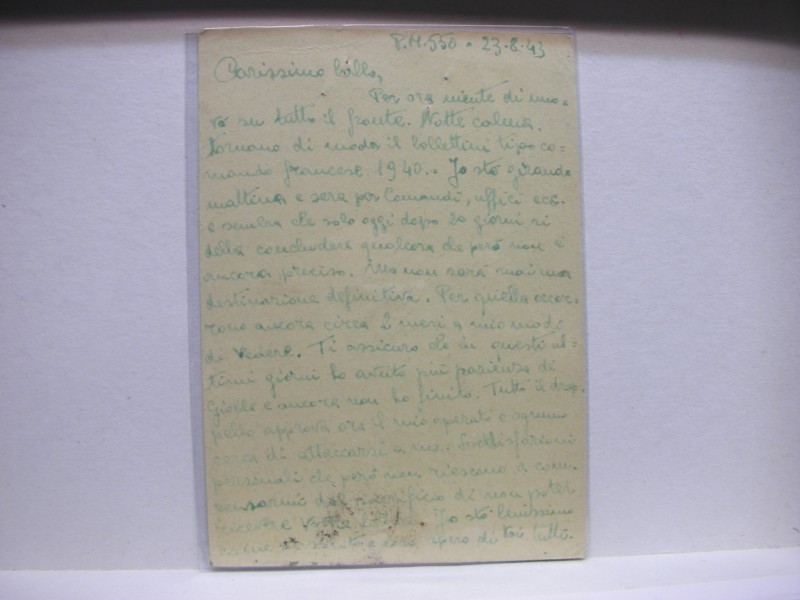 P.M. 550 - 23-8-43
Carissimo
Per ora niente di nuo-
vo su tutto il fronte. Notte calma.
Tornano di moda il bollettini tipo co-
mando francese 1940.. Io sto girando
mattina e sera per Comandi, uffici ecc.
e sembra che solo oggi dopo 20 giorni si
debba concludere qualcosa che però non è
ancora preciso. Ma non sarà mai una
destinazione definitiva. Per quella occor-
rono ancora circa 2 mesi a mio modo
di vedere. Ti assicuro che in questi ul-
timi giorni ho avuto più pazienza di
Giobbe e ancora non ho finito. Tutto il drap-
pello approva ora il mio operato e ognuno
cerca di attaccarsi a me. Soddisfazioni
personali che però non riescono a com-
pensarmi del sacrificio di non poter
Io sto benissimo
e così spero di voi tutti.